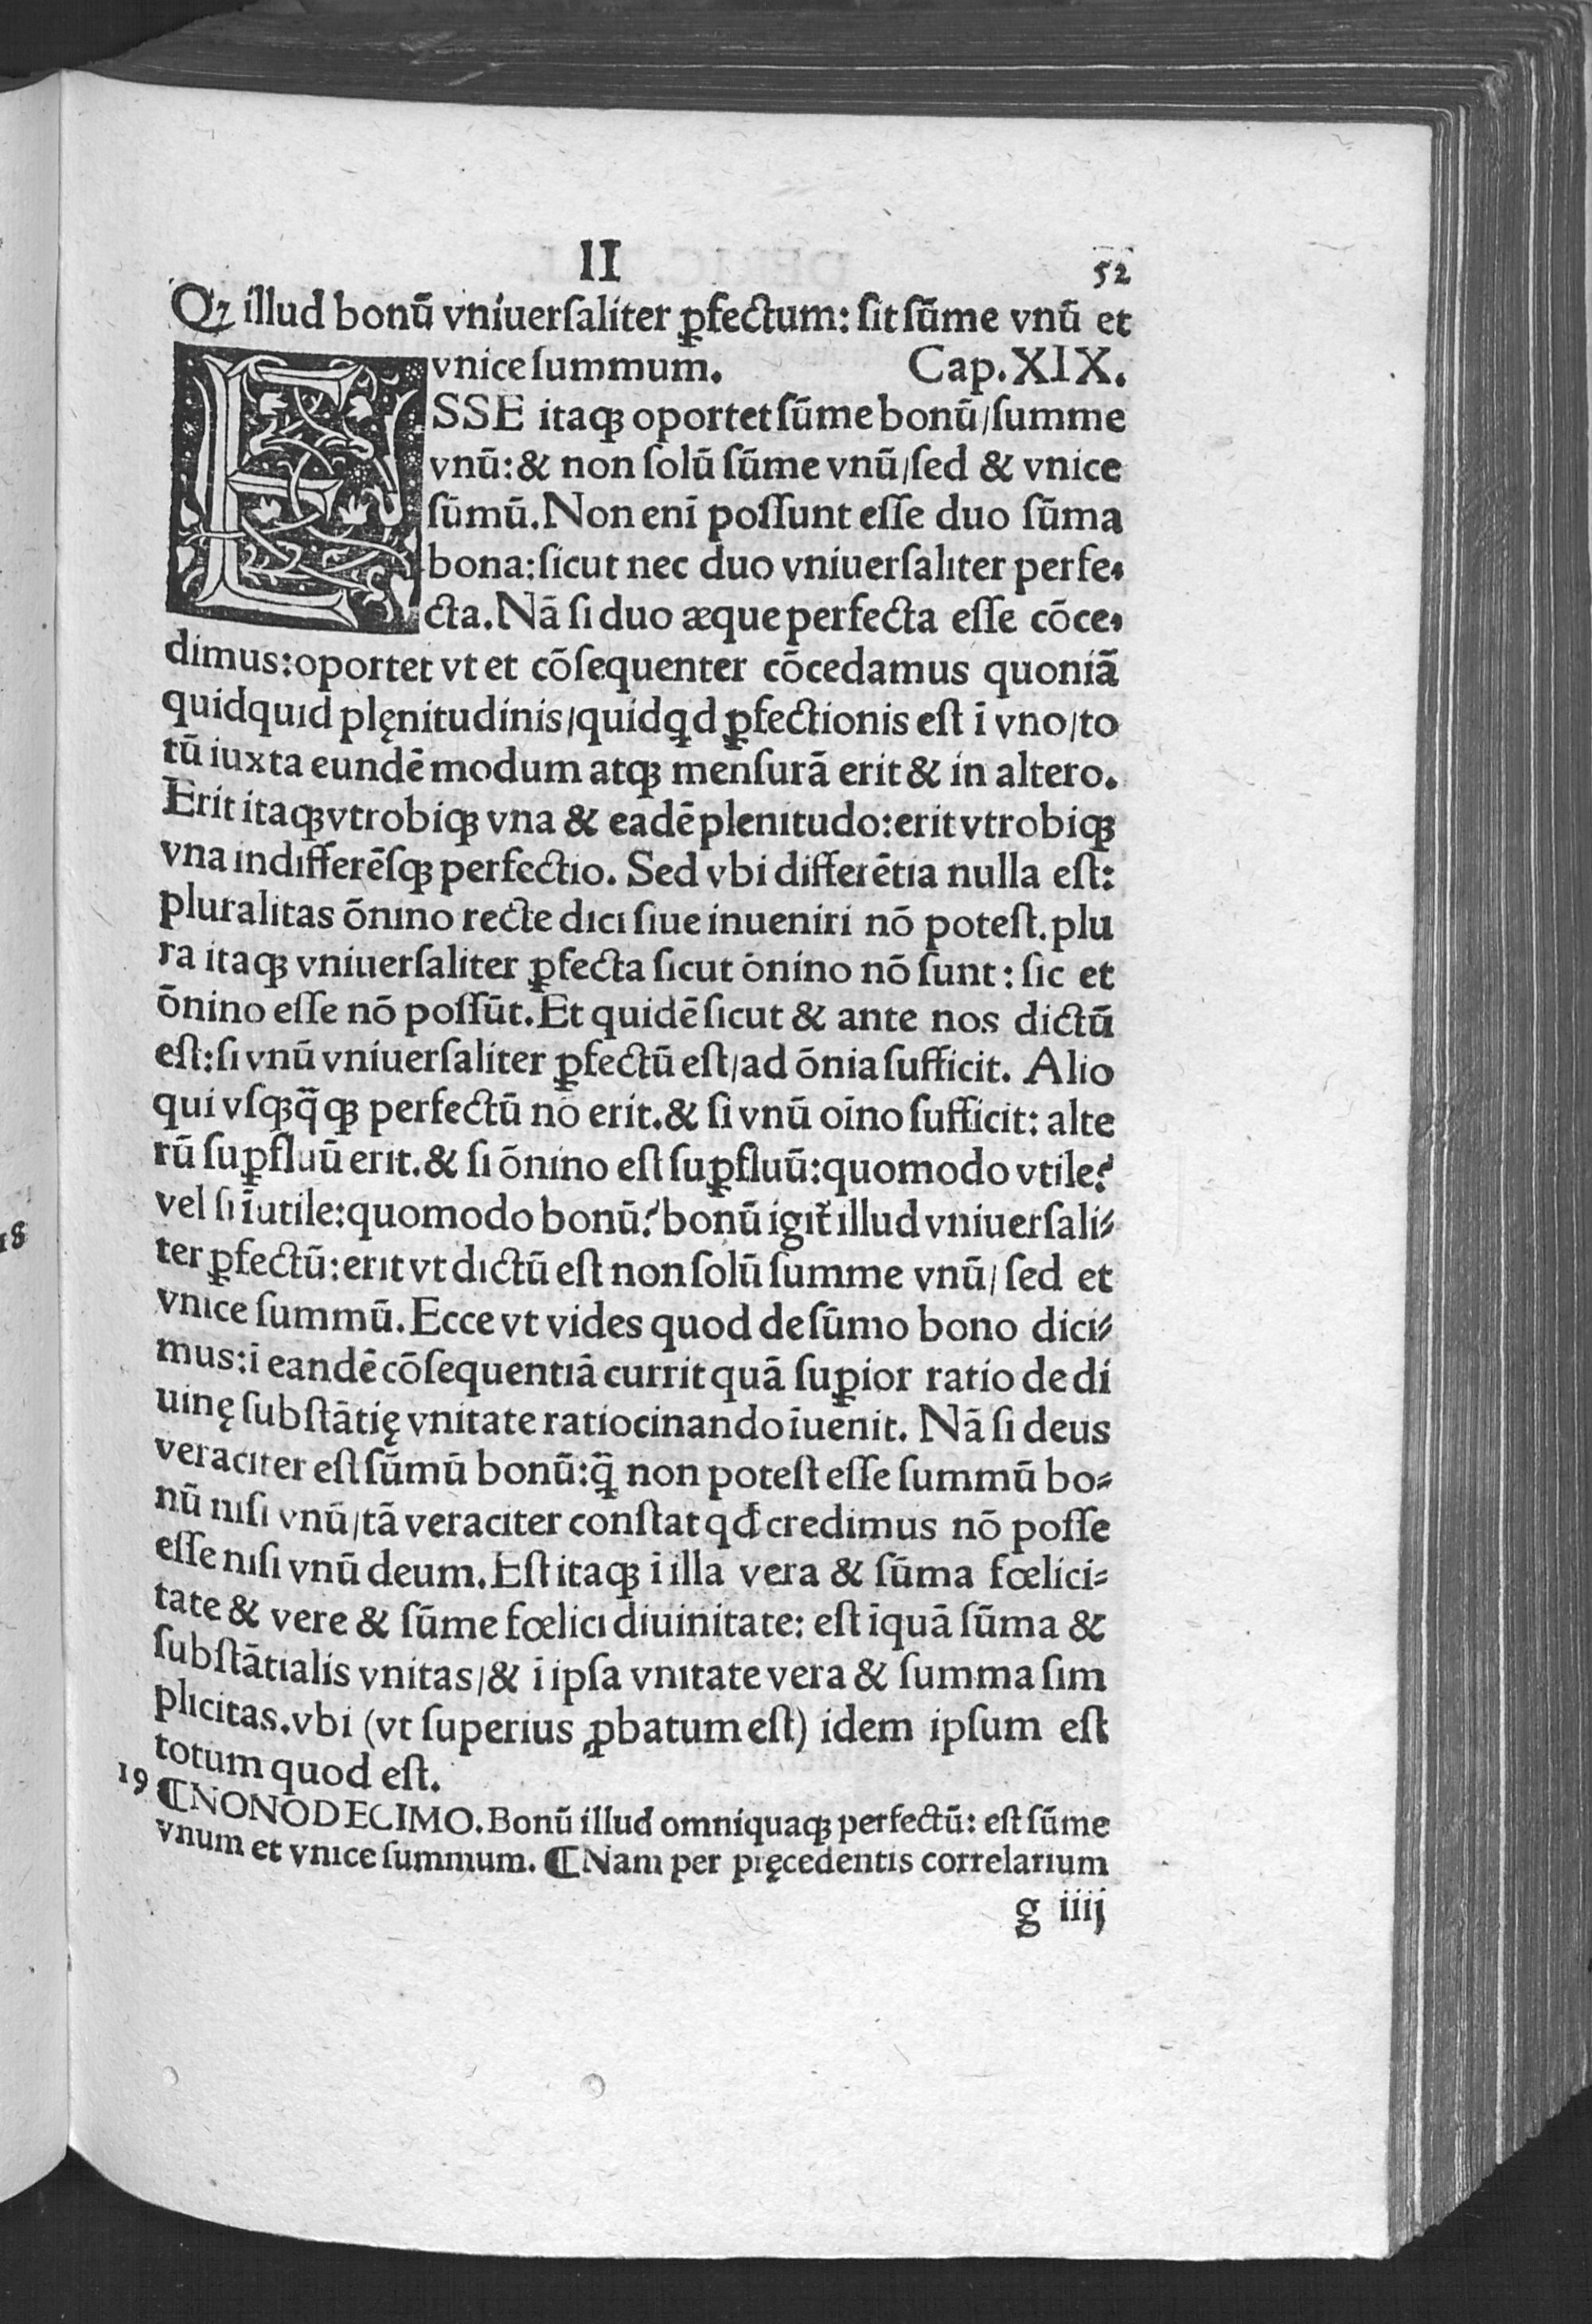 II
52
Qꝫ illud bonū vniuersaliter ꝑfectum: sit sūme vnū et
vnice summum. Cap. XIX.
ESSE itaqꝫ oportet sūme bonū/summe
vnū: & non solū sūme vnū/sed & vnice
sūmū. Non enī possunt esse duo sūma
bona: sicut nec duo vniuersaliter perfe-
cta. Nā si duo æque perfecta esse cōce-
dimus: oportet vt et cōsequenter cōcedamus quoniā
quidquid plęnitudinis/quidqͥd ꝑfectionis est ī vno/to
tū iuxta eundē modum atqꝫ mensurā erit & in altero.
Erit itaqꝫ vtrobiqꝫ vna & eadē plenitudo: erit vtrobiqꝫ
vna indifferēsqꝫ perfectio. Sed vbi differētia nulla est:
pluralitas ōnino recte dici siue inueniri nō potest. plu
ra itaqꝫ vniuersaliter ꝑfecta sicut ōnino nō sunt: sic et
ōnino esse nō possūt. Et quidē sicut & ante nos dictū
est: si vnū vniuersaliter ꝑfectū est/ad ōnia sufficit. Alio
qui vsqꝫqͣqꝫ perfectū nō erit. & si vnū oīno sufficit: alte
rū suꝑfluū erit. & si ōnino est suꝑfluū: quomodo vtile?
vel si īutile: quomodo bonū? bonū igit̃ illud vniuersali-
ter ꝑfectū: erit vt dictū est non solū summe vnū/ sed et
vnice summū. Ecce vt vides quod de sūmo bono dici-
mus: ī eandē cōsequentiā currit quā suꝑior ratio de di
uinę substātię vnitate ratiocinando īuenit. Nā si deus
veraciter est sūmū bonū: qͣ non potest esse summū bo-
nū nisi vnū/tā veraciter constat qđ credimus nō posse
esse nisi vnū deum. Est itaqꝫ ī illa vera & sūma fœlici-
tate & vere & sūme fœlici diuinitate: est īquā sūma &
substātialis vnitas/& ī ipsa vnitate vera & summa sim
plicitas. vbi (vt superius ꝓbatum est) idem ipsum est
totum quod est.
19 ¶NONODECIMO. Bonū illud omniquaqꝫ perfectū: est sūme
vnum et vnice summum. ¶Nam per pręcedentis correlarium
g iiij
18